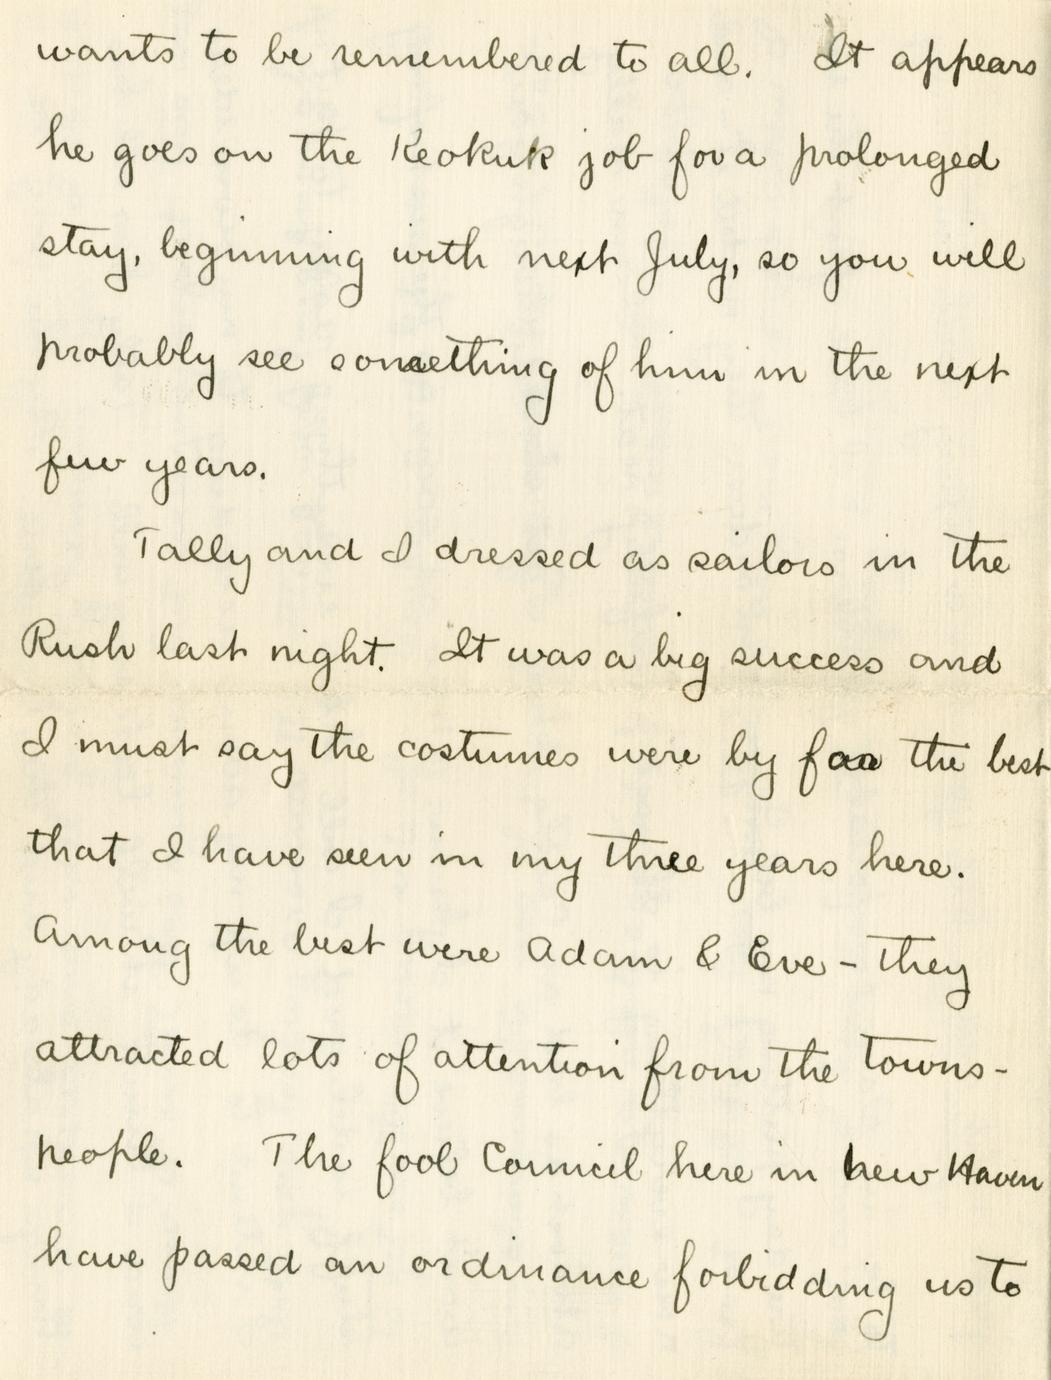 wants to be remembered to all. It appears
he goes on the Keokuk job for a prolonged
stay, beginning with next July, so you will
probably see something of him in the next
few years.
Tally and I dressed as sailors in the
Rush last night. It was a big success and
I must say the costumes were by far the best
that I have seen in my three years here.
Among the best were Adam & Eve - they
attracted lots of attention from the towns-
people. The fool Council here in New Haven
have passed an ordinance forbidding us to